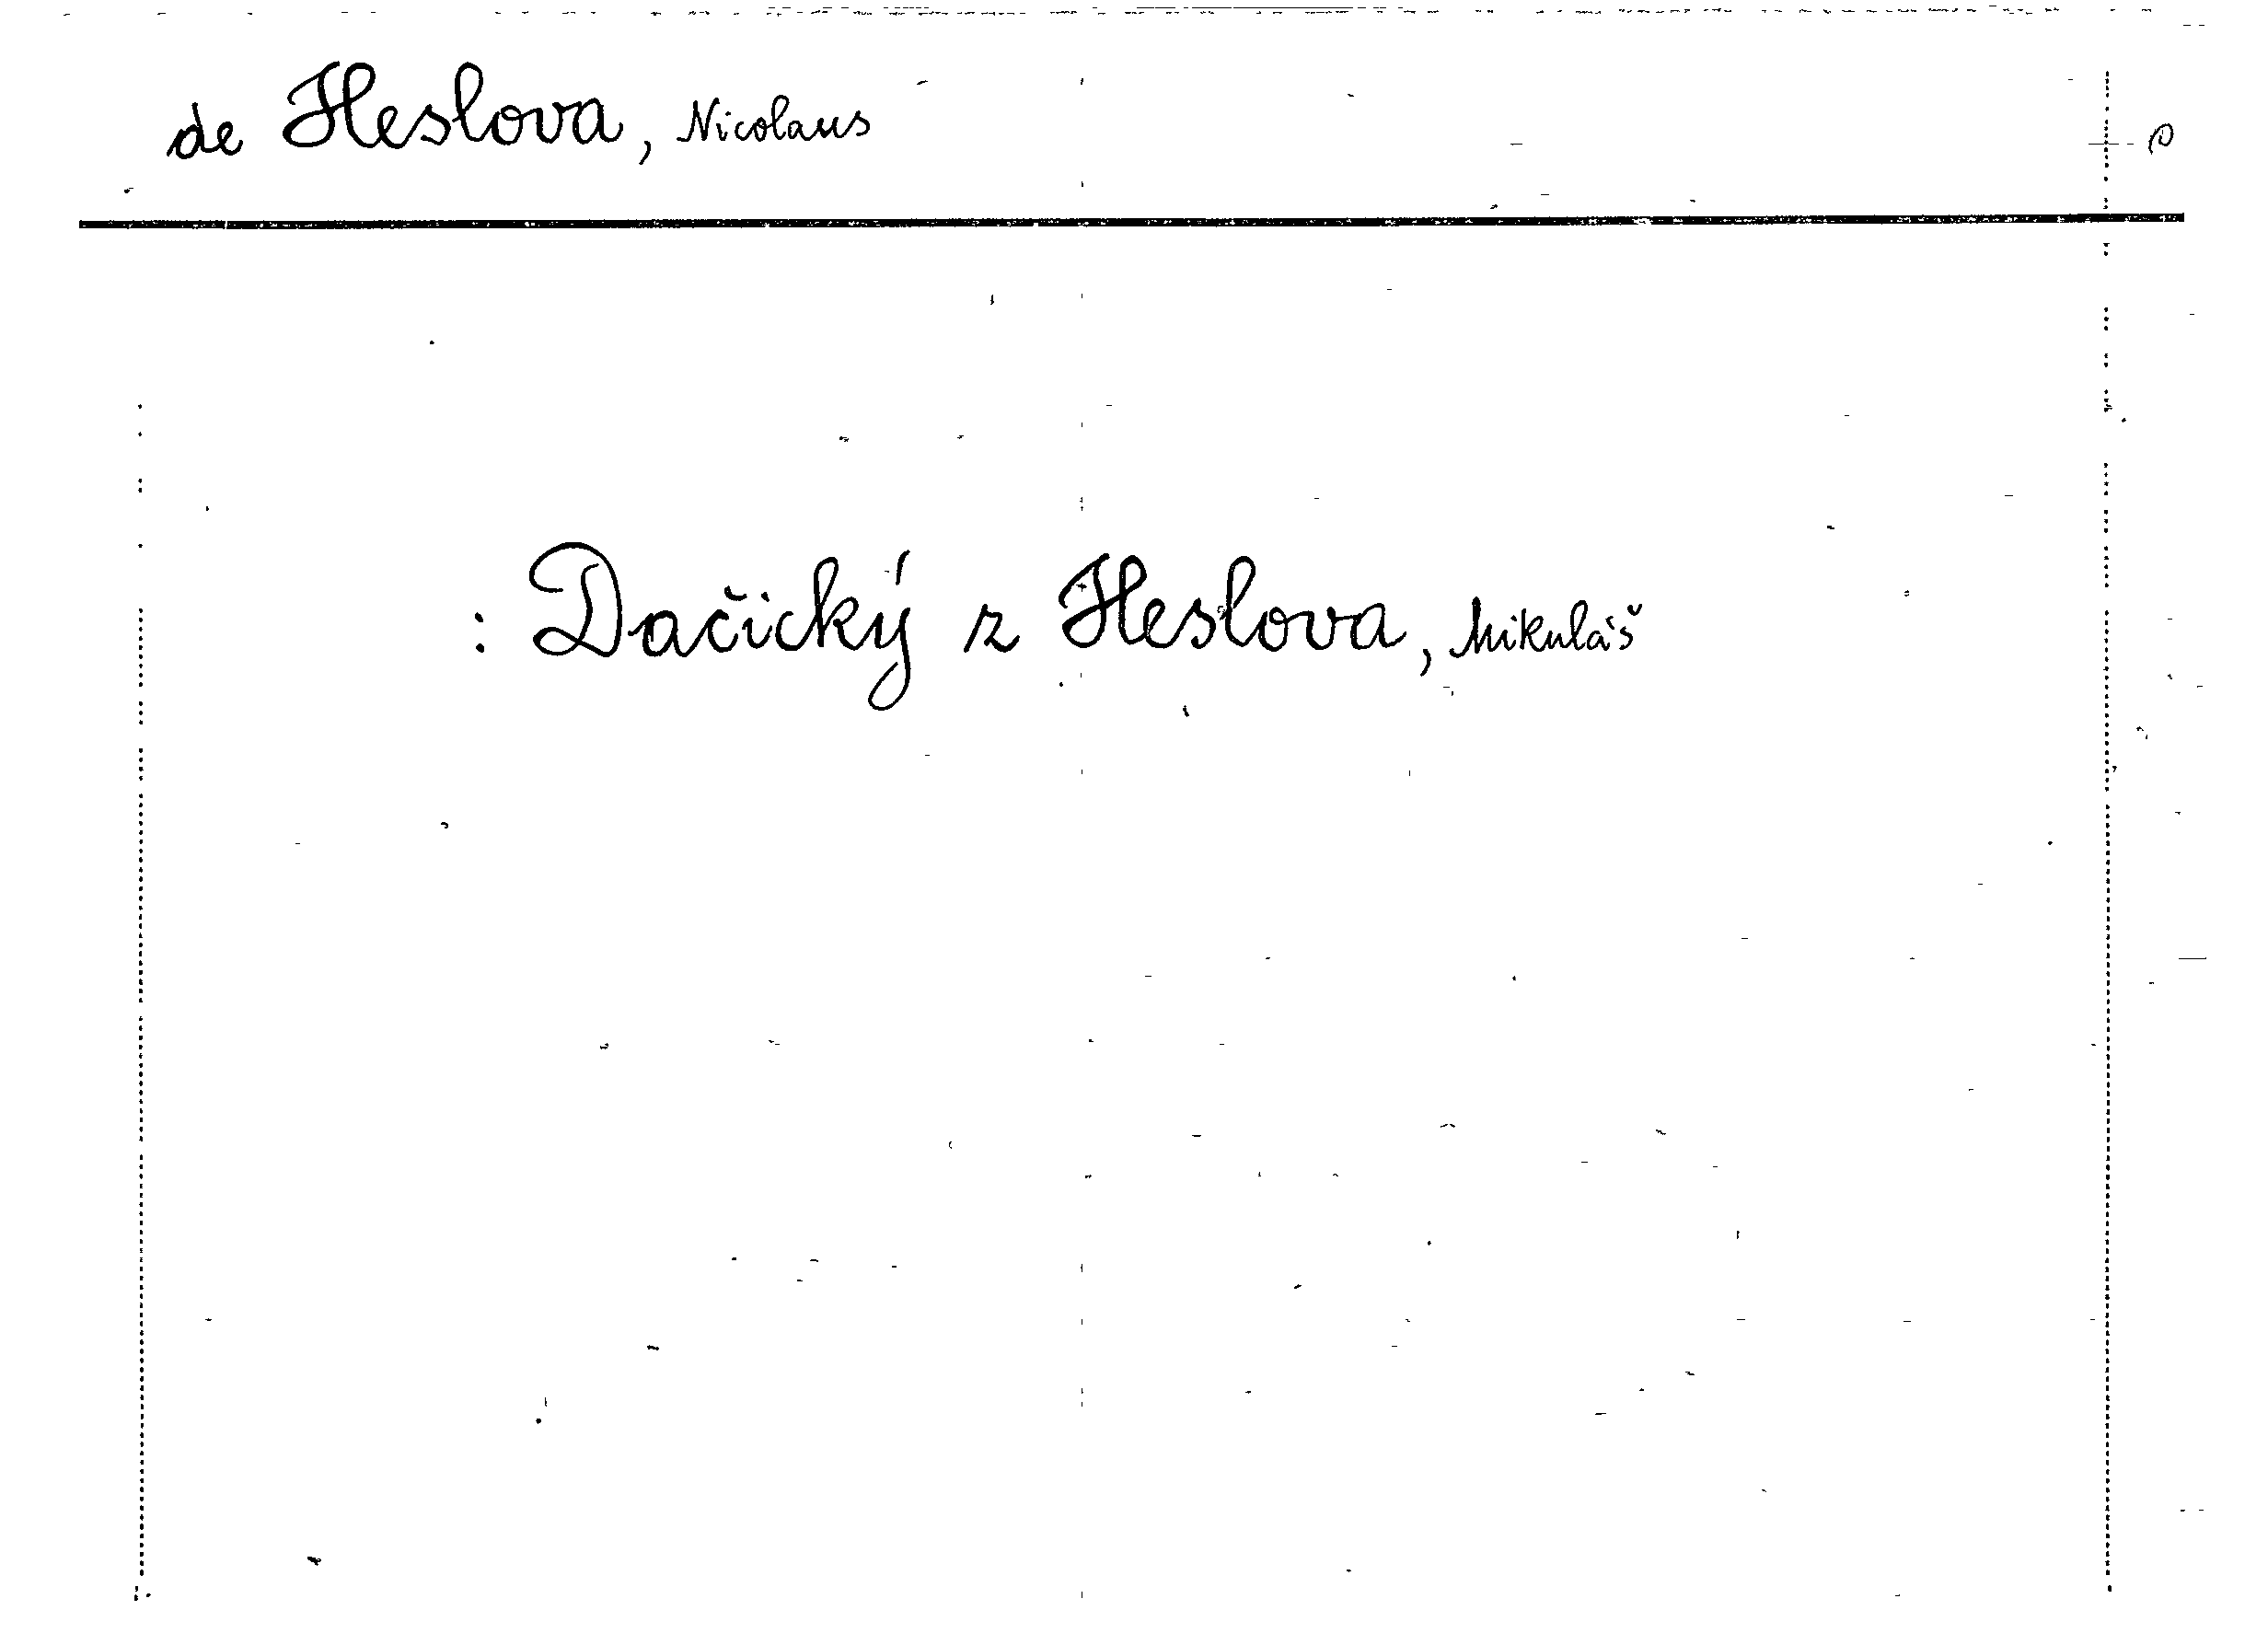 de Heslova, Nicolaus
: Dačický z Heslova, Mikuláš